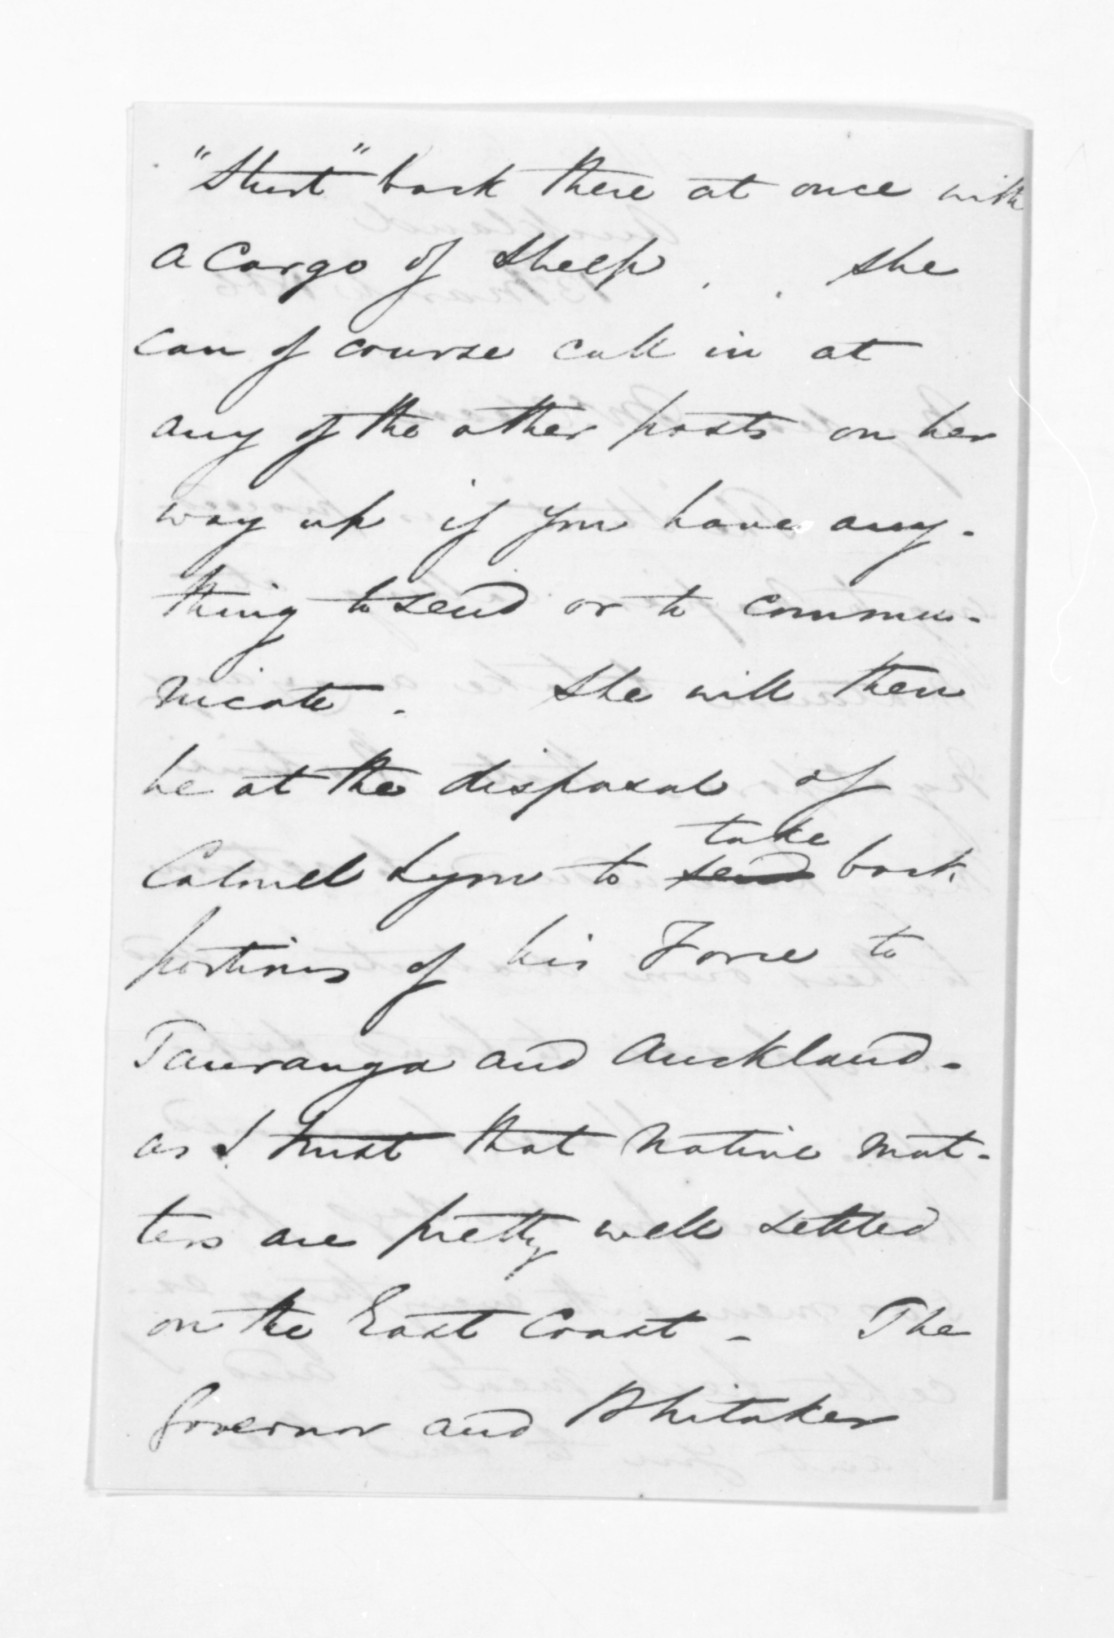 "Sturt" back there at once with
a Cargo of Sheep. . She
can of course call in at
any of the other posts on her
way up if you have any-
thing to send or to commu-
nicate. She will then
be at the disposal of
Colonel Lyon to ~~send~~ take back
portions of his Force to
Tauranga and Auckland -
as I trust that Native mat-
ters are pretty well settled
on the East Coast - The
Governor and Whitaker